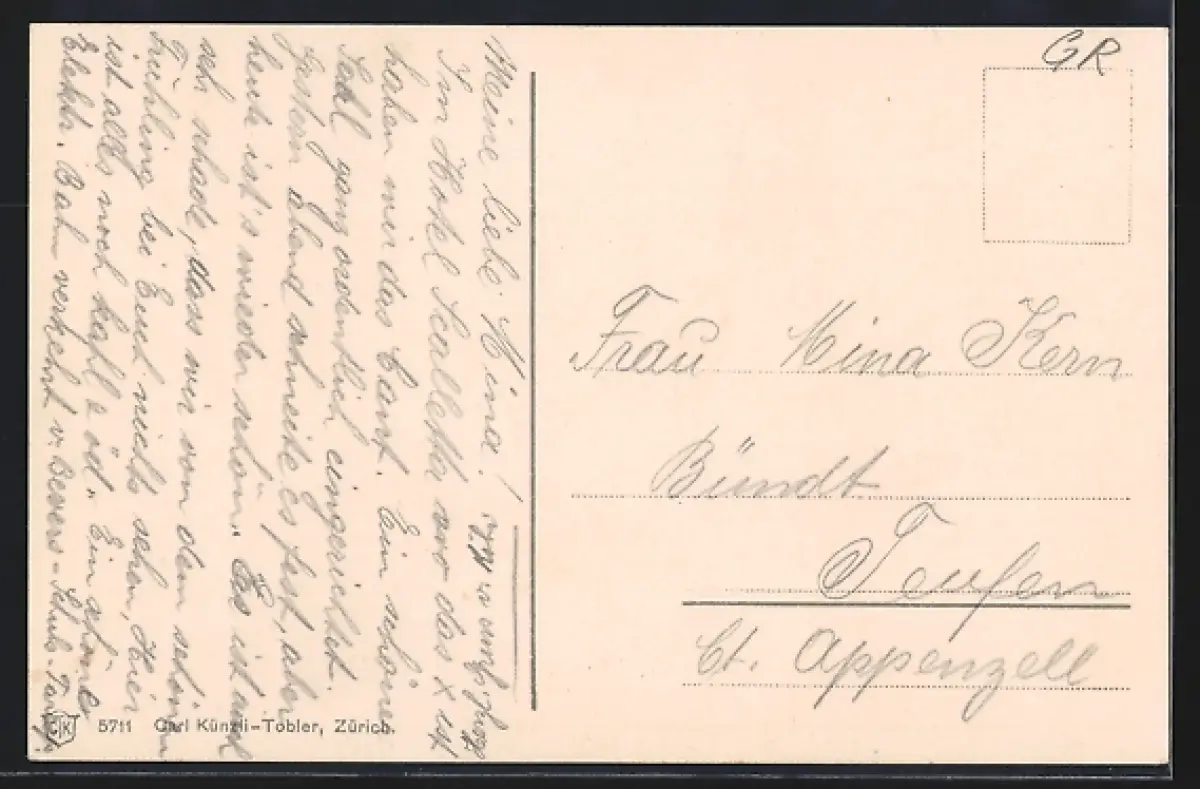 Meine liebe Mina!
Im Hotel Scaletta wo das x ist
haben wir das Cant.
Ein schöner
Saal ganz ordentlich eingerichtet.
Gestern Abend schneite Es fest, aber
heute ist's wieder schön. Es ist auch
sehr schade, dass wir von dem schönen
Frühling bei Euch nichts sehen, Hier
ist alles noch kahl & öd. Ein schöne
Elektr. Bahn verkehrt v. Bevers-Schuls-Tarasp
GR
Frau Mina Kern
Bündt
Teufen
Ct. Appenzell
CK 5711 Carl Künzli-Tobler, Zürich.